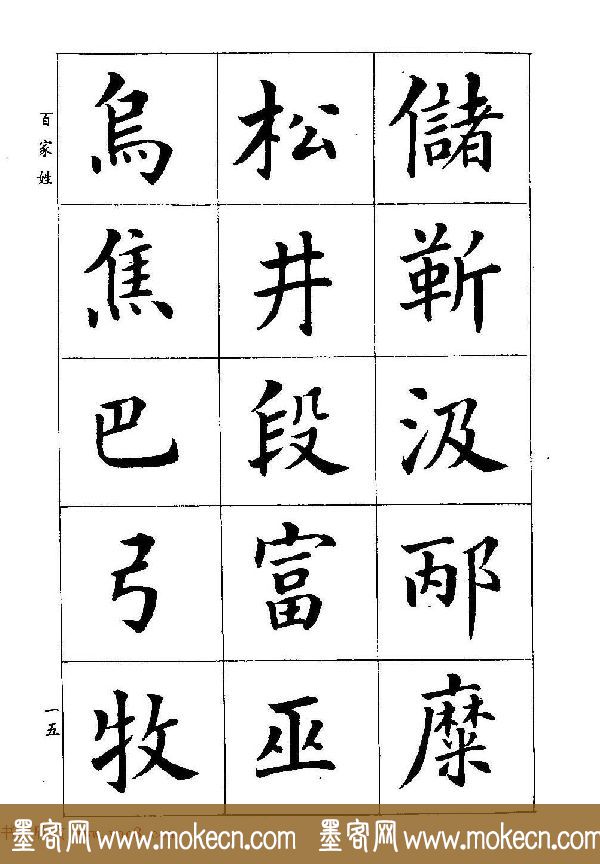 儲靳汲邴糜
松井段富巫
烏焦巴弓牧
百家姓
一五
墨客网 www.mokecn.com 墨客网 www.mokecn.com